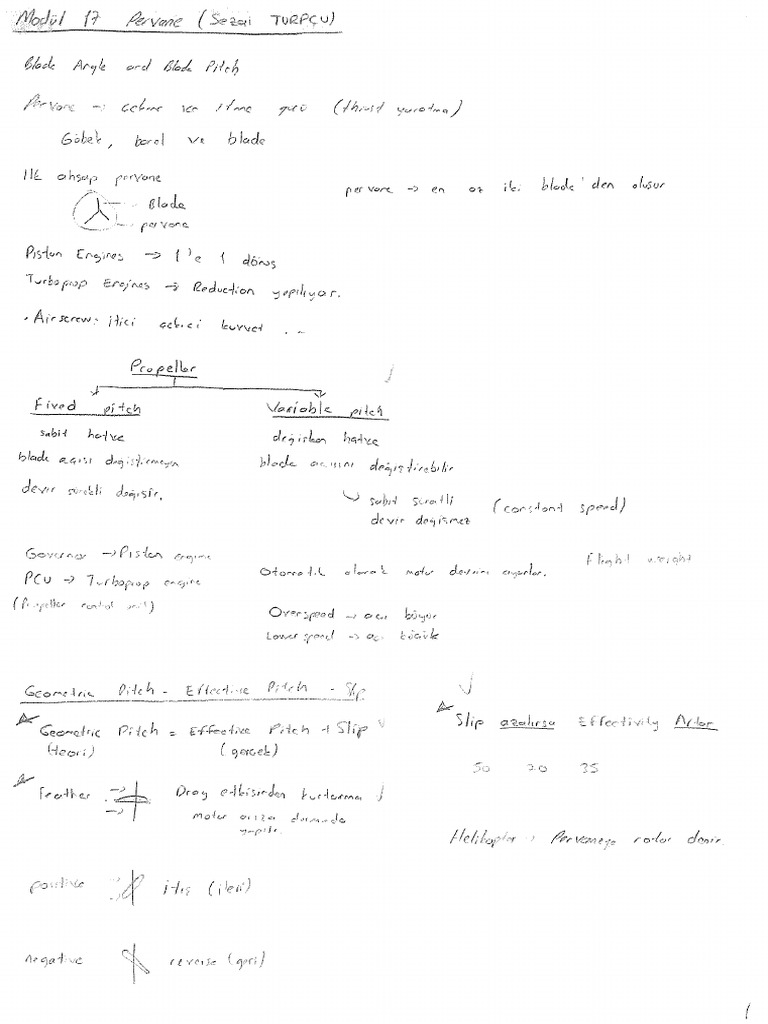 Modül 17 Pervane (Sezai TURPÇU)
Blade Angle and Blade Pitch
Pervane → çekme ve itme gücü (thrust yaratma)
Göbek, barel ve blade
İlk ahşap pervane
pervane → en az iki blade'den oluşur
Blade
pervane
Piston Engines → 1'e 1 dönüş
Turboprop Engines → Reduction yapılıyor.
• Airscrew: itici çekici kuvvet ...
Propeller
Fixed pitch
Variable pitch
sabit hatve
değişken hatve
blade açısı değiştiremeyen
blade açısını değiştirebilir
devir sürekli değişir.
sabit süratli (constant speed)
devir değişmez
Governor → Piston engine
Flight weight
PCU → Turboprop engine
Otomatik olarak motor devrini ayarlar.
(Propeller control unit)
Overspeed → açı büyür
Lowerspeed → açı küçük
Geometric Pitch - Effective Pitch - Slip
Geometric Pitch = Effective Pitch + Slip
(teori) (gerçek)
Slip azalırsa Effectivity Artar
50 20 35
Feather Drag etkisinden kurtarma
motor arıza durumunda
yapılır.
Helikopter → Pervaneye rotor denir.
positive itiş (ileri)
negative reverse (geri)
1